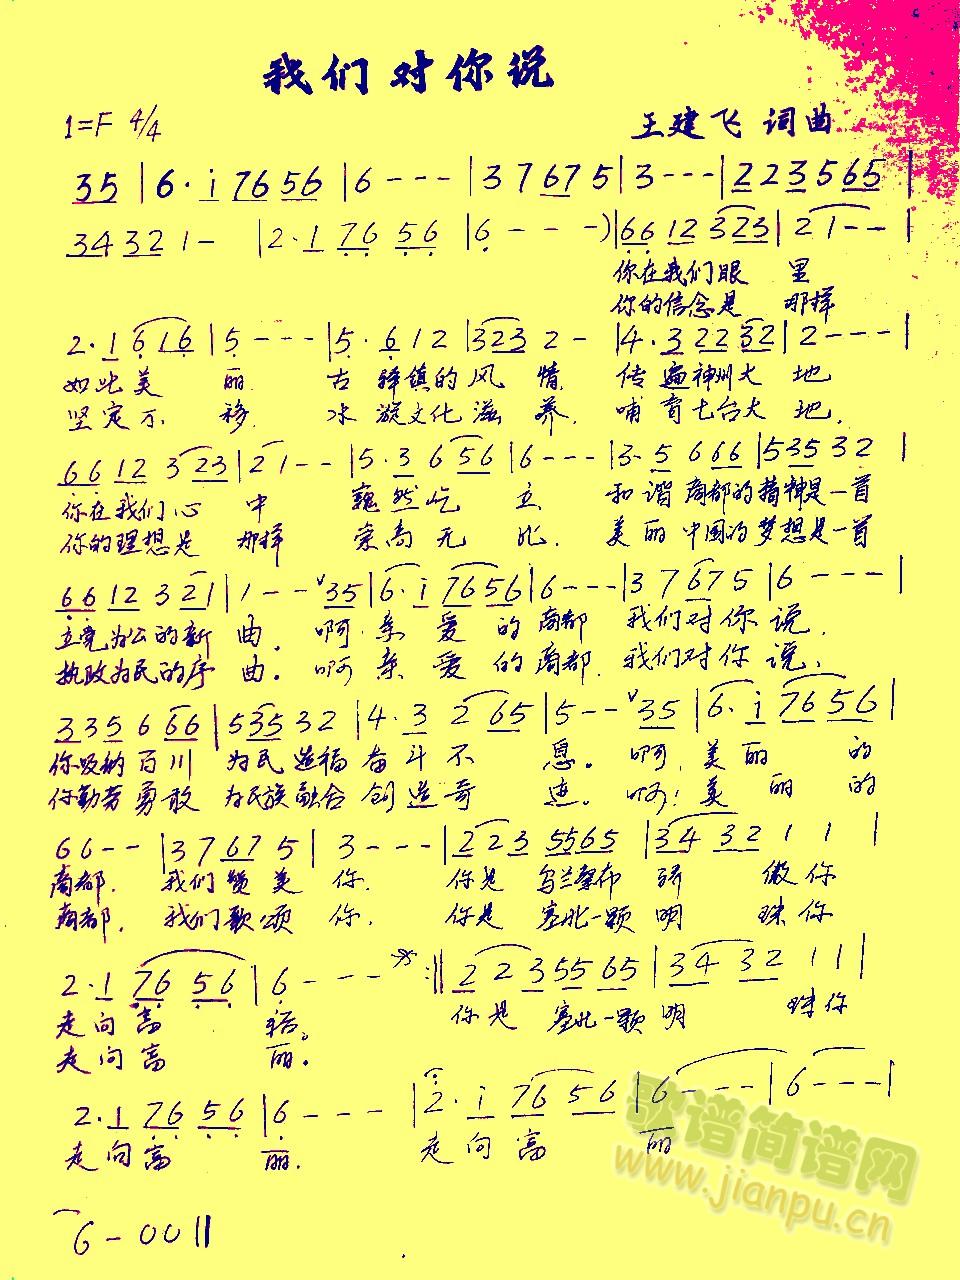 我们对你说
1=F 4/4
王建飞 词曲
35 | 6·i 7656 | 6--- | 37675 | 3--- | 223565 |
34321- | 2·1 7656 | 6---) | 6612 323 | 21-- |
你在我们眼 里
你的信念是 那样
2·1 6165 | 5--- | 5·612 | 3232- | 4·3 2232 | 2--- |
如此美 丽 古驿镇的风 情 传遍神州大 地
坚定不 移 水漩文化滋 养 哺育七台大 地
6612 323 | 21-- | 5·3 656 | 6--- | 3·5 666 | 53532 |
你在我们心 中 巍然屹 立 和谐商都的精神是一首
你的理想是 那样 崇高无 比 美丽中国的梦想是一首
6612 321 | 1-- 35 | 6·i 7656 | 6--- | 37675 | 6--- |
立党为公的新 曲。 啊 亲 爱 的 商都 我们对你 说,
执政为民的序 曲。 啊 亲 爱 的 商都. 我们对你 说,
335666 | 53532 | 4·3 265 | 5-- 35 | 6·i 7656 |
你吸纳百川 为民造福奋斗不 息。 啊, 美 丽 的
你勤劳勇敢 为民族融合创造奇 迹。 啊! 美 丽 的
66-- | 37675 | 3--- | 223 5565 | 3432 1 1 |
商都. 我们赞美 你. 你是乌兰察布骄 傲你
商都. 我们歌颂 你. 你是塞北一颗明 珠你
2·1 7656 | 6--- :‖ 2235565 | 3432 11 |
走向富 裕。 你是 塞北一颗明 珠你
走向富 丽.
2·1 7656 | 6--- | 2·i 7656 | 6--- | 6--- |
走向富 丽. 走向富 丽
6-00‖
歌谱简谱网
www.jianpu.cn